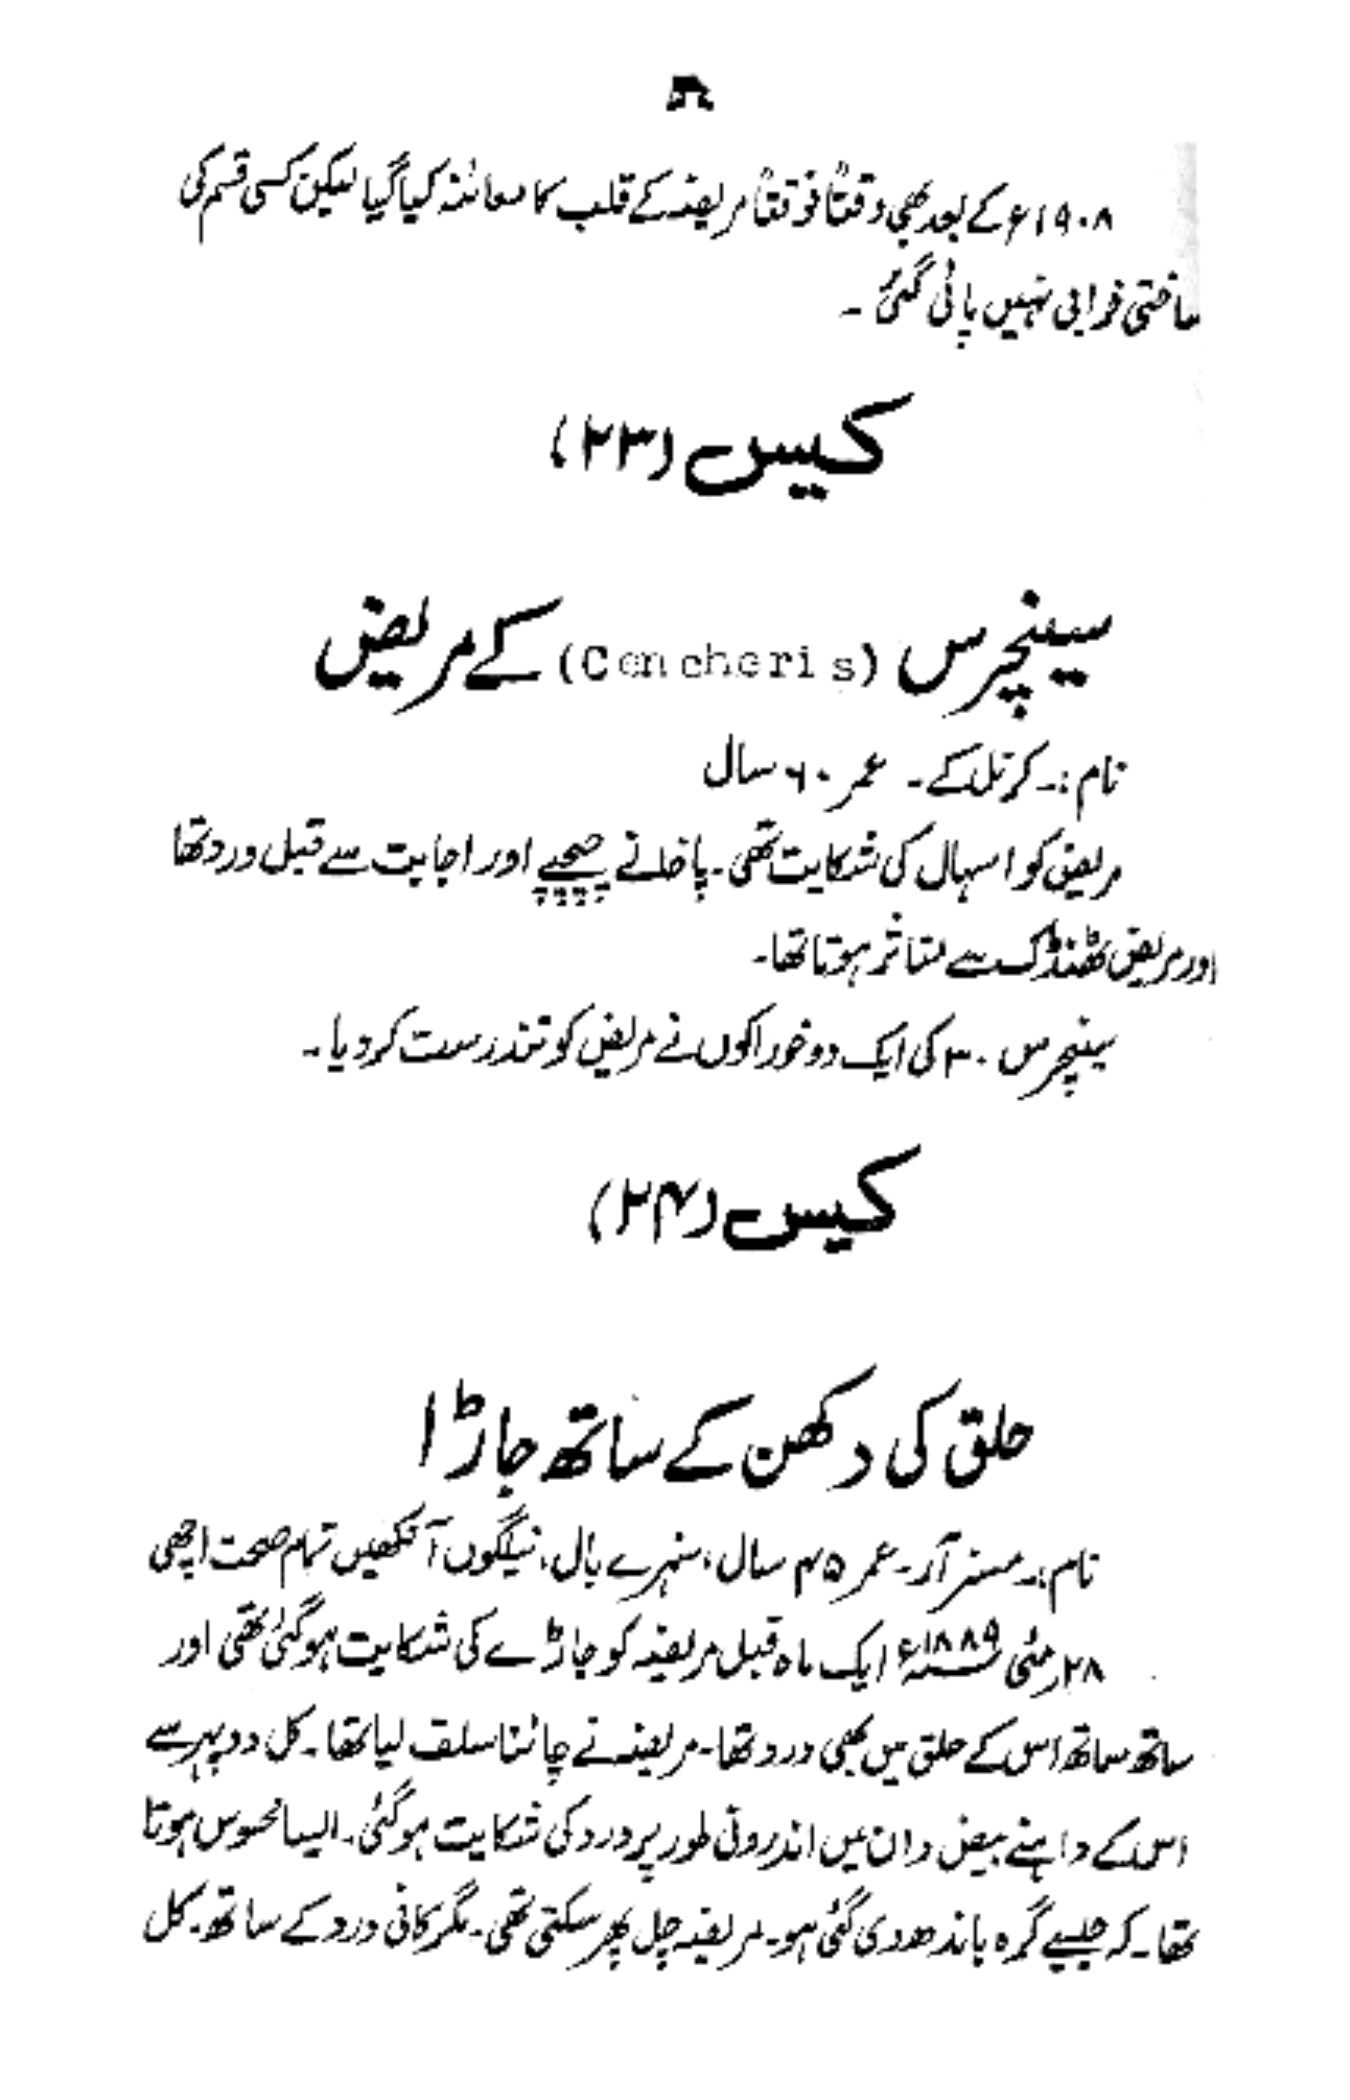 ۱۹۰۸ء کے بعد بھی وقتاً فوقتاً مریضہ کے قلب کا معائنہ کیا گیا لیکن کسی قسم کی
ساختی خرابی نہیں پائی گئی ۔
کیس (۲۳)
سینچرس (Cencheris) کے مریض
نام :۔ کرنل کے ۔ عمر ۶۰ سال
مریض کو اسہال کی شکایت تھی ۔ پاخانے چیچپے اور اجابت سے قبل درد تھا
اور مریض ٹھنڈک سے متاثر ہوتا تھا۔
سینچرس ۳۰ کی ایک دو خوراکوں نے مریض کو تندرست کر دیا ۔
کیس (۲۴)
حلق کی دکھن کے ساتھ جاڑا
نام :۔ مسز آر ۔ عمر ۴۵ سال ، سنہرے بال ، نیلگوں آنکھیں تمام صحت اچھی
۲۸ مئی ۱۸۸۹ء ایک ماہ قبل مریضہ کو جاڑے کی شکایت ہو گئی تھی اور
ساتھ ساتھ اس کے حلق میں بھی درد تھا ۔ مریضہ نے چائنا سلف لیا تھا ۔ کل دوپہر سے
اس کے داہنے بیض دان میں اندرونی طور پر درد کی شکایت ہو گئی ۔ ایسا محسوس ہوتا
تھا ۔ کہ جیسے گرہ باندھ دی گئی ہو ۔ مریضہ چل پھر سکتی تھی ۔ مگر کافی درد کے ساتھ ۔ کل